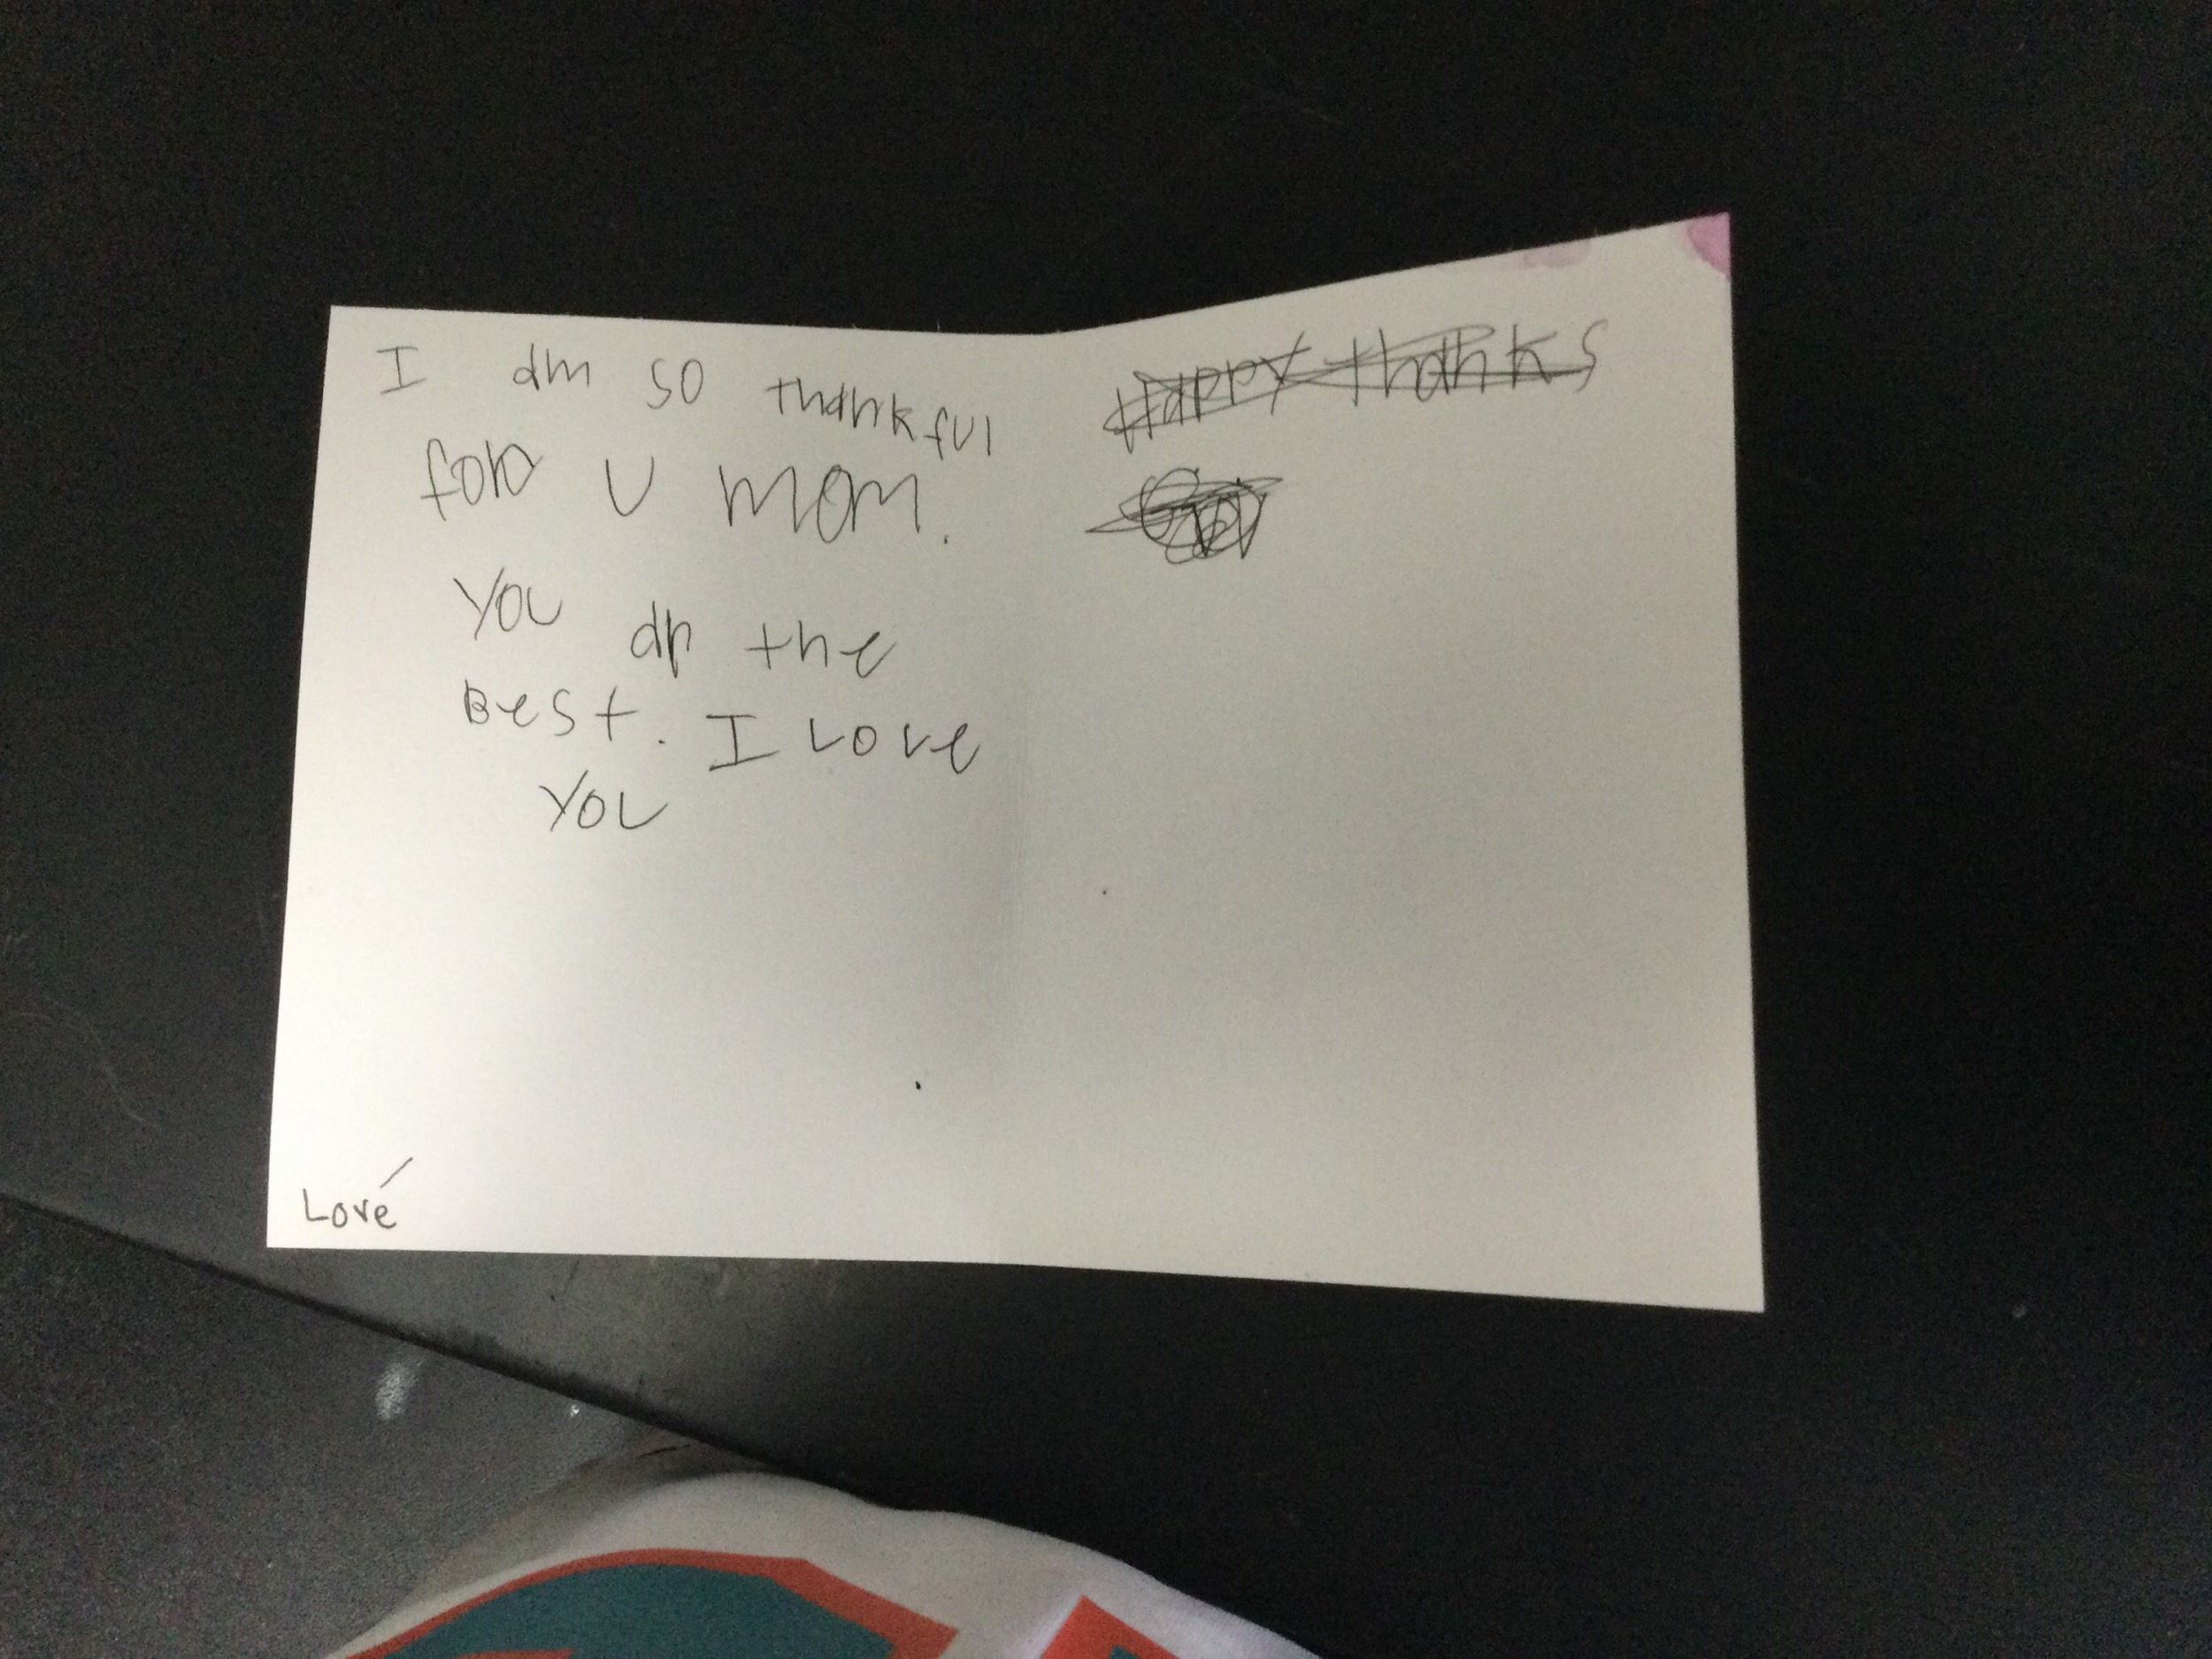 I am so thankful
for U mom.
You ar the
Best. I Love
You
Love
Happy thanks